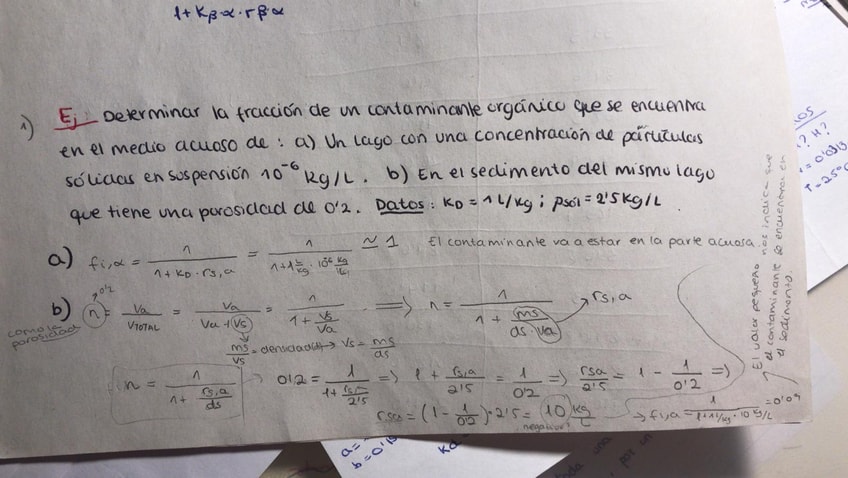 1 + Kβα · rβα
1) Ej: Determinar la fracción de un contaminante orgánico que se encuentra
en el medio acuoso de: a) Un lago con una concentración de partículas
sólidas en suspensión 10⁻⁶ kg/L. b) En el sedimento del mismo lago
que tiene una porosidad de 0'2. Datos: KD = 1 L/kg ; ρsol = 2'5 kg/L.
a) fi,α = 1 / (1 + KD · rs,a) = 1 / (1 + 1 L/kg · 10⁻⁶ kg/L) ≃ 1 El contaminante va a estar en la parte acuosa.
b) n = Va / VTOTAL = Va / (Va + Vs) = 1 / (1 + Vs/Va) ⟹ n = 1 / (1 + ms / (ds · Va)) → rs,a
0'2
porosidad
ms / Vs = densidad → Vs = ms / ds
n = 1 / (1 + rs,a / ds) → 0'2 = 1 / (1 + rs,a / 2'5) => 1 + rs,a / 2'5 = 1 / 0'2 => rsa / 2'5 = 1 - 1 / 0'2 =>
rsa = (1 - 1 / 0'2) · 2'5 = 10 kg/L → fi,a = 1 / (1 + 1 L/kg · 10 kg/L) = 0'09
negativo?
El valor pequeño nos indica que
el contaminante se encuentra en
el sedimento.
a =
b = 0'
? H?
T = 25º